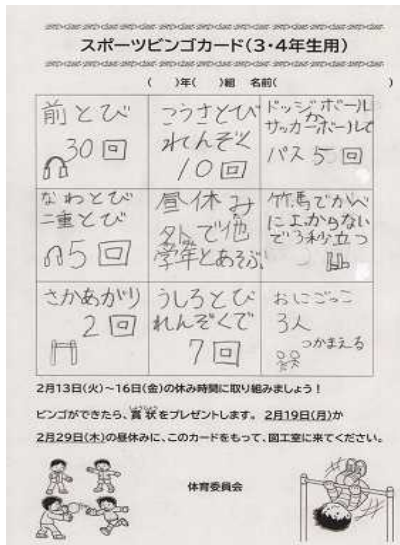 スポーツビンゴカード(3・4年生用)
(　　)年(　　)組　名前(　　　　　　　　)
前とび
30回
こうさとび
れんぞく
10回
ドッジボール
か
サッカーボールで
パス5回
なわとび
二重とび
5回
昼休み
外で他
学年とあそぶ
竹馬でかべ
によからない
で3秒立つ
さかあがり
2回
うしろとび
れんぞくで
7回
おにごっこ
3人
つかまえる
2月13日(火)～16日(金)の休み時間に取り組みましょう！
ビンゴができたら、賞状をプレゼントします。2月19日(月)か
2月29日(木)の昼休みに、このカードをもって、図工室に来てください。
体育委員会